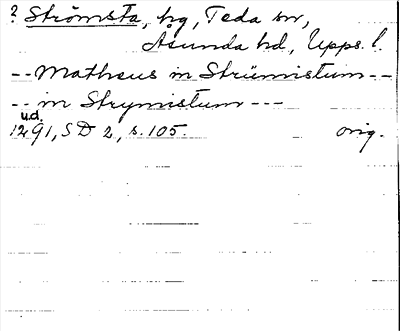 ? Strömsta, hg, Teda sn,
Åsunda hd, Upps. l.
-- Matheus in Strümistum --
-- in Strymistum ---
u.d.
1291, SD 2, s. 105. orig.